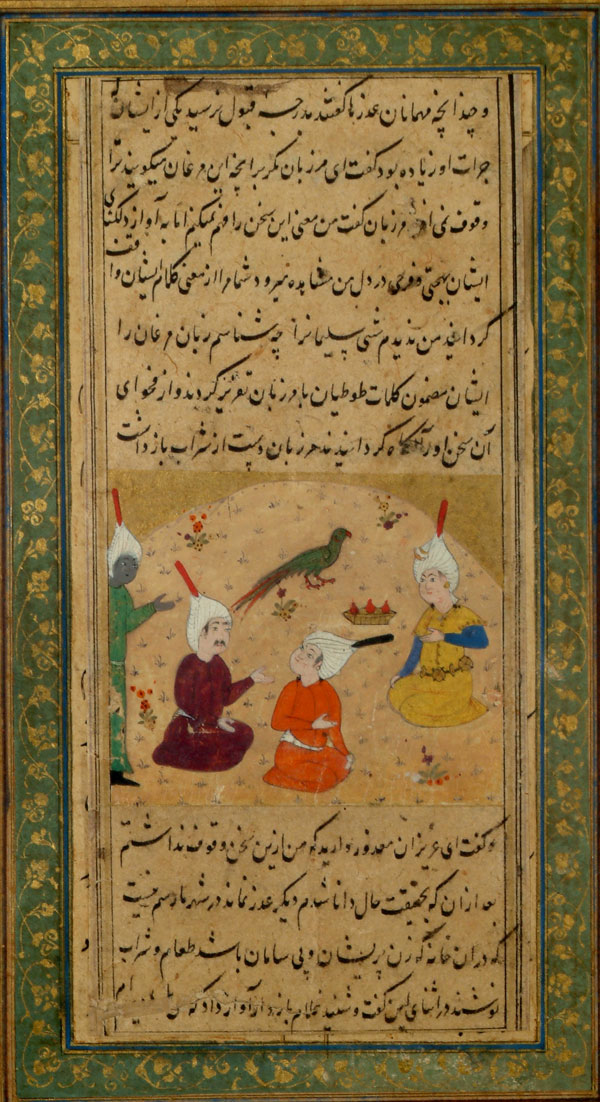 و چندانچه مهمانان عذرها گفتند بدرجه قبول نرسید یکی از ایشان
جرات اورزیاده بود گفت ای مرزبان مگر بر آنچه این مرغان میگویند ترا
وقوفی نی او مرزبان گفت من معنی این سخن را فهم نمیکنم اما به آواز دلکشای
ایشان بهجتی و فرحی در دل من مشاهده میرود شما مرا از معنی کلام ایشان واقف
گردانید من ندیدم شبی سلیمانرا چه شناسم زبان مرغان را
ایشان مضمون کلمات طوطیان با مرزبان تقریر کردند و از فحوای
آن سخن اورا آگاه گردانیدند مرزبان دست از شراب بازداشت
و گفت ای عزیزان معذور دارید که من ازین سخن وقوف نداشتم
بعد ازان که بحقیقت حال دانا شدم دیگر عذر نماند در شهر ما رسم نیست
که در آن خانه که زن پریشان و بی سامان باشد طعام و شراب
نوشند در اثنای این گفت و شنید غلام بازدار آواز داد که